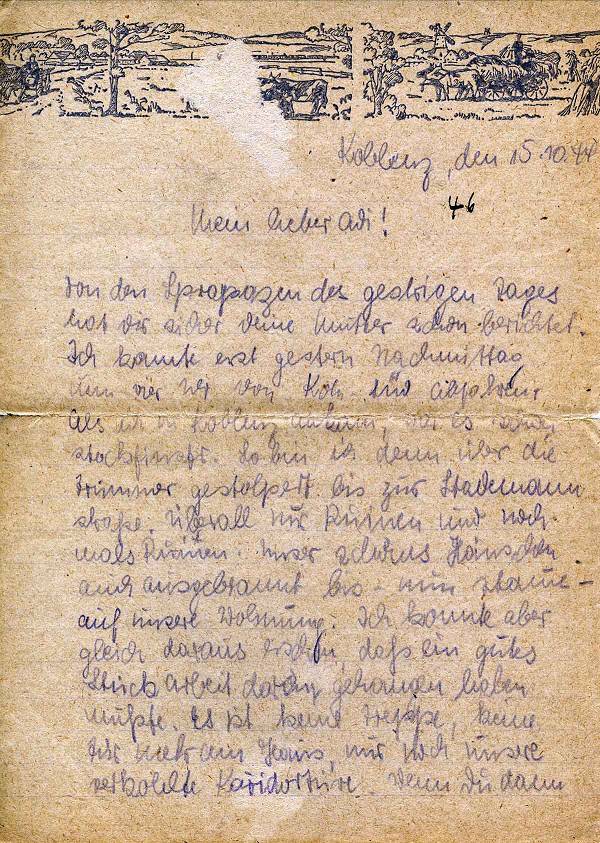 Koblenz, den 15.10.44
46
Mein lieber Adi!
Von den Sprapazen des gestrigen Tages
hat dir sicher deine Mutter schon berichtet.
Ich konnte erst gestern Nachmittag
um vier Uhr von Köln-Süd abfahren.
Als ich in Koblenz ankam, war es schon
stockfinster. So bin ich denn über die
Trümmer gestolpert bis zur Stademann
straße. Überall nur Ruinen und noch-
mals Ruinen. Unser schönes Häuschen
auch ausgebrannt bis - nun staune -
auf unsere Wohnung. Ich konnte aber
gleich daraus ersehen, daß ein gutes
Stück Arbeit daran gehangen haben
mußte. Es ist keine Treppe, keine
Tür mehr am Haus, nur noch unsere
verkohlte Karidortüre. Wenn Du dann